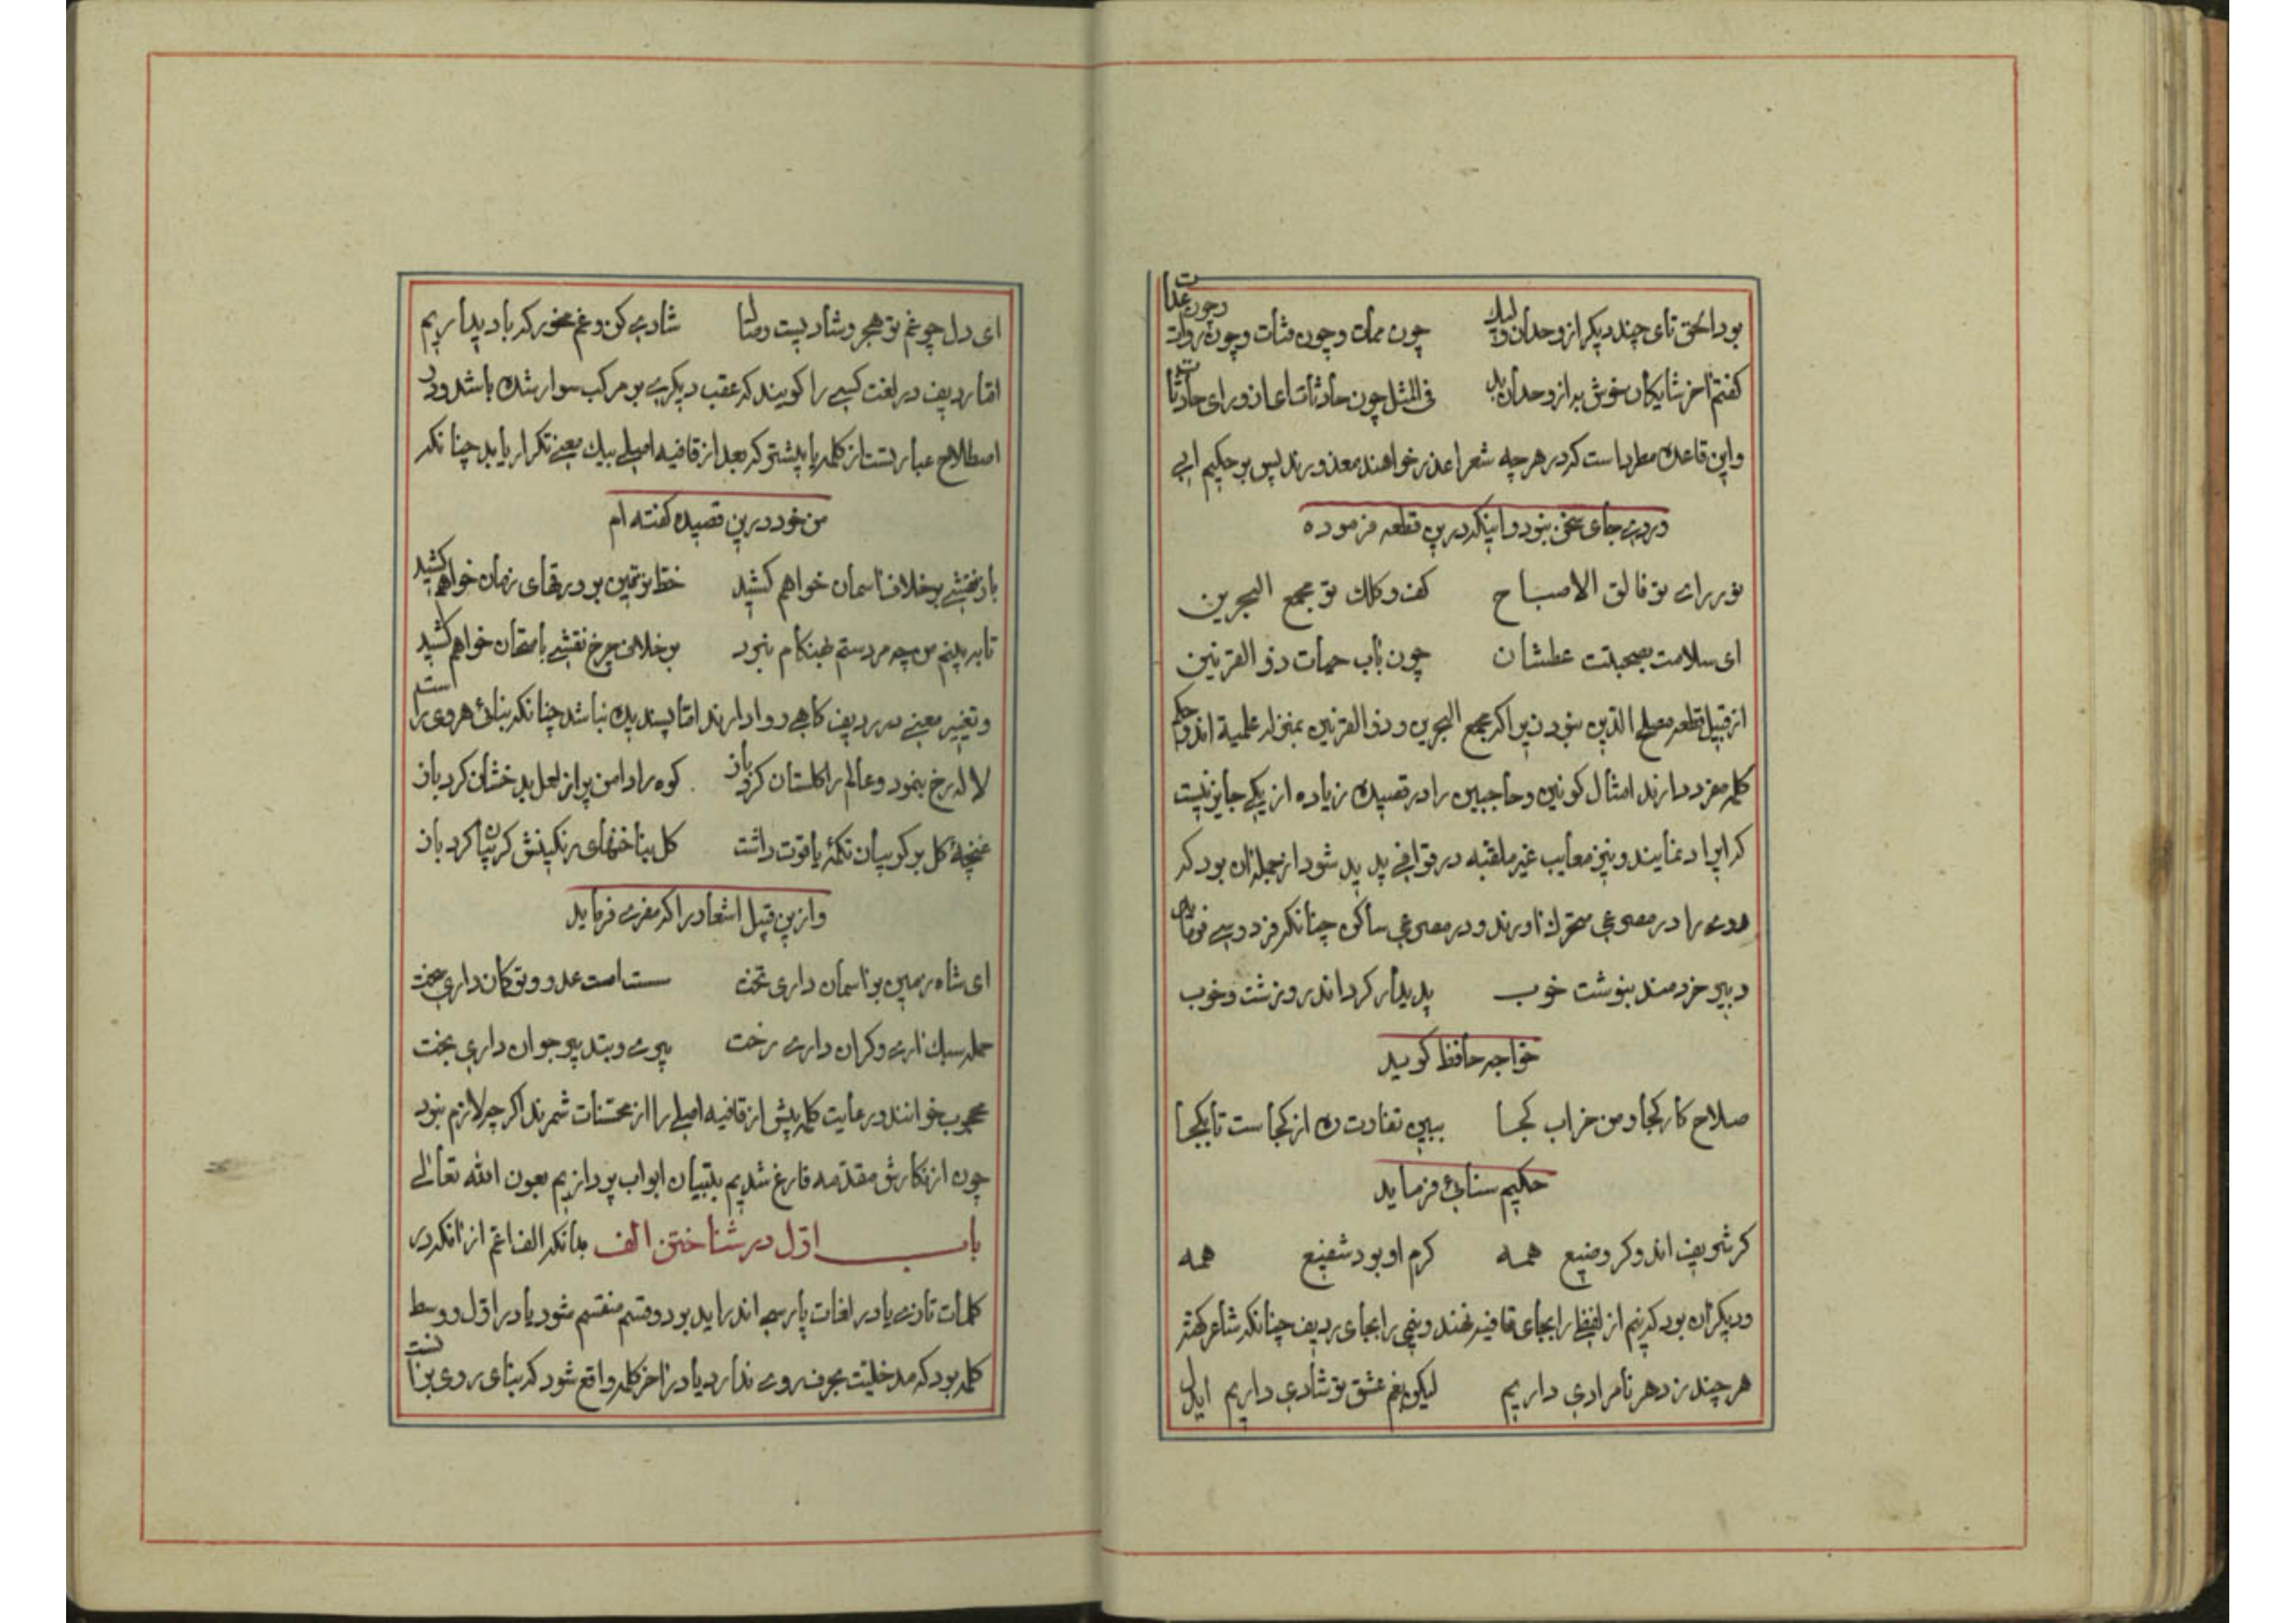 بود الحق تای چند دیگر از وحدان ولیک چون ممات و چون مثات و چون روات و چون عدات
گفتم آخر شایکان خوش به از وحدان بد فی المثل چون حادثات اعان و رای حادثات
و این قاعده مطرد است که در هر چه شعرا عذر خواهند معذورند پس بر حکیم
در وی جای سخن نبود و اینکه درین قطعه فرموده
نور رای تو فالق الاصباح کف و کلک تو مجمع البحرین
ای سلامت بصحبتت عطشان چون بآب حیات ذو القرنین
از قبیل قطعه مصلح الدین نبود زیرا که مجمع البحرین و ذو القرنین بمنزله علمیة اند و حکم
کلمه مفرد دارند امثال کونین و حاجبین را در قصیده زیاده از یکی جایز نیست
که ایراد نمایند و نیز معایب غیر ملقبه در قوافی پدید شود از جمله آن بود که
روی را در مصرعی متحرک آورند و در مصرعی ساکن چنانکه فردوسی
دبیر خردمند بنوشت خوب پدیدار کرد اندرو زشت و خوب
خواجه حافظ گوید
صلاح کار کجا و من خراب کجا ببین تفاوت ره از کجاست تا بکجا
حکیم سنائی فرماید
گر شریف اند و گر وضیع همه کرم او بود شفیع همه
و دیگر آن بود که نیم از لفظ را بجای قافیه نهند و نیمی را بجای ردیف چنانکه شاعر گفته
هر چند ز دهر نامرادی داریم لیکن بغم عشق تو شادی داریم
ای دل چو غم تو هجر و شادیست وصال شادی کن و غم مخور که باد پداریم
اما ردیف در لغت کسی را گویند که عقب دیگری بر مرکب سوار شده باشد و در
اصطلاح عبارتست از کلمه یا بیشتر که بعد از قافیه اصلی بیک معنی تکرار یابد چنانکه
من خود درین قصیده گفته ام
باز نقشی بر خلاف آسمان خواهم کشید خط بر ورقهای زمان خواهم کشید
تا نه بینم من چه مردستم بهنگام نبرد بر خلاف چرخ نقشی بامتحان خواهم کشید
و تغییر معنی در ردیف گاهی روا دارند اما پسندیده نباشد چنانکه بنائی هروی راست
لاله رخ بنمود و عالم را گلستان کرد باز کوه را دامن پر از لعل بدخشان کرد باز
غنچه گل بر گریبان تکمه یاقوت داشت گل بناخنهای رنگینش گریبان کرد باز
و ازین قبیل اشعار را که معزی فرماید
ای شاه زمین بر آسمان داری تخت سست است عدو و تو کمان داری سخت
حمله سبک آری و گران داری رخت پیری و بتدبیر جوان داری بخت
محجوب خوانند و رعایت کلمه پیش از قافیه اصلی را از محسنات شمرند اگر چه لازم نبود
چون از نگارش مقدمه فارغ شدیم بتبیان ابواب پردازیم بعون الله تعالی
باب اول در شناختن الف بدانکه الف اعم از آنکه در
کلمات تازی یا در لغات پارسی اندر آید بر دو قسم منقسم شود یا در اول و وسط
کلمه بود که مدخلیت بحرف روی ندارد یا در آخر کلمه واقع شود که بنای روی بر آنست